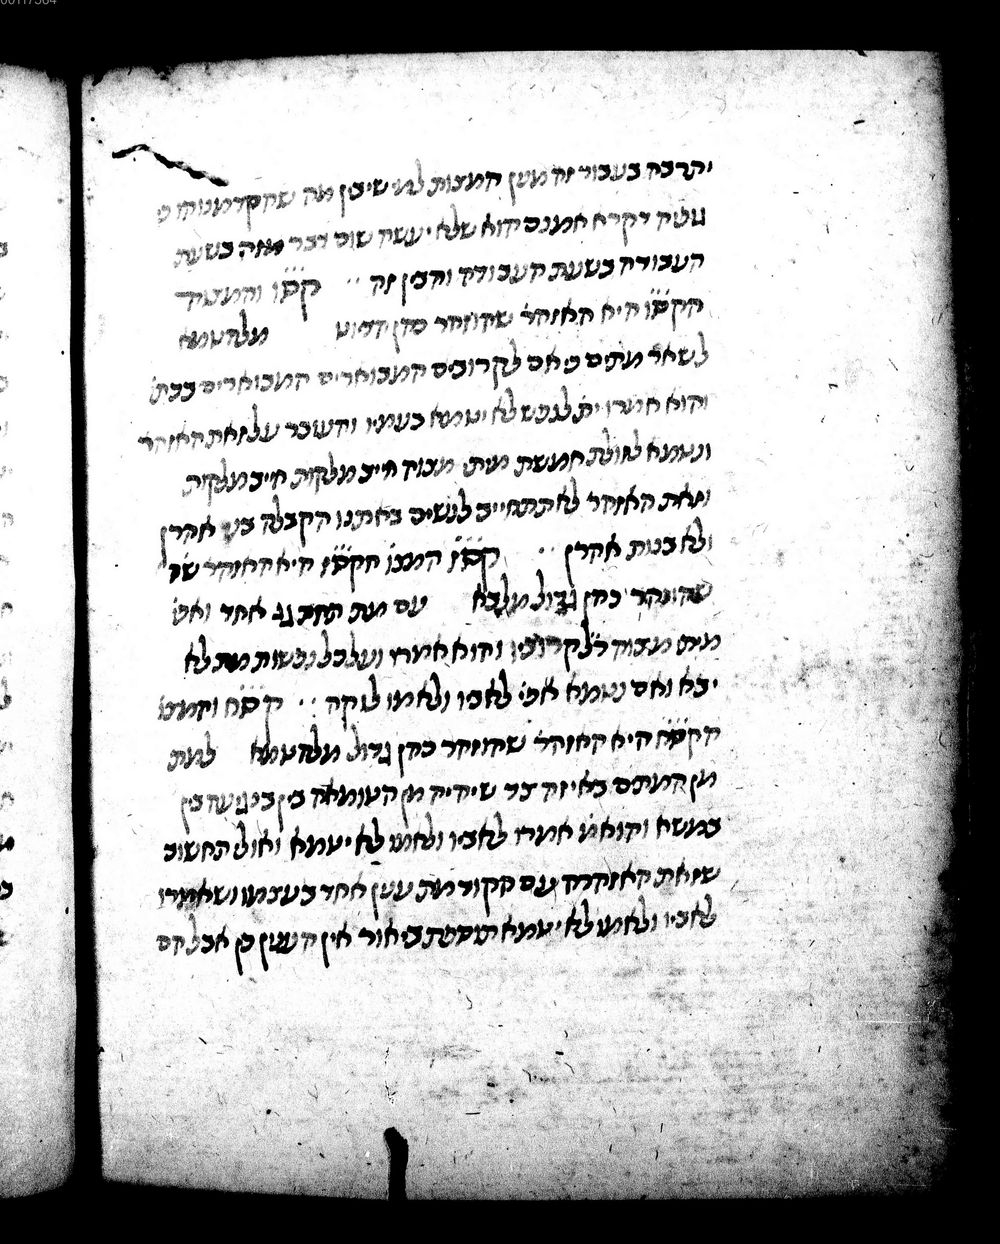 יתרבה בעבור זה מנין המצות למי שיבין מה שהקדמנוהו כי
גוליה דקרא אמנם הוא שלא יעשה שום דבר מזה בשעת
העבודה בשעת העבודה והבין זה קסו והמצוה
הקסו היא האזהר שהוזהר כהן הדיוט מלהטמא
לשאר מתים כי אם לקרובים המבוארים המבוארים בכתו
והוא אמרו ית לנפש לא יטמא בעמיו והעובר על זאת האזהר
ונטמא לזולת חמשת מיתי מצוה חייב מלקות חייב מלקות
וזאת האזהר לא תתחייב לנשים באתנו הקבלה בני אהרן
ולא בנות אהרן קסז המצו הקסז היא האזהר שה
שהוזהר כהן גדול מלבא עם מת תחת גג אחד ואפי
מתים מצוה דלקרוביו והוא אמרו ועל כל נפשות מת לא
יבא ואם נטמא אפי לאביו ולאמו לוקה קסח והמצו
הקסח היא האזהר שהוזהר כהן גדול מלהטמא למת
מן המתים באיזה צד שיהיה מן הטומאה בין בנגיעה בין
במשא והוא אמרו לאביו ולאמו לא יטמא ואולי תחשוב
שזאת האזהרה עם הקודמת ענין אחד בעצמו ושאמרו
לאביו ולאמו לא יטמא תוספת ביאור אין הענין כן אבל הם